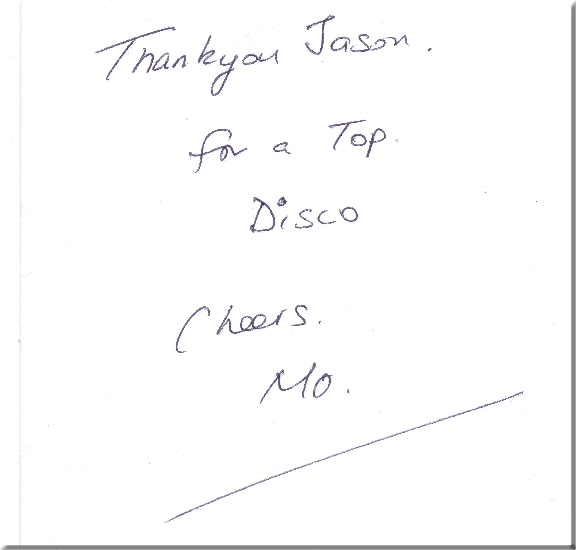 Thankyou Jason.
for a Top.
Disco
Cheers.
Mo.